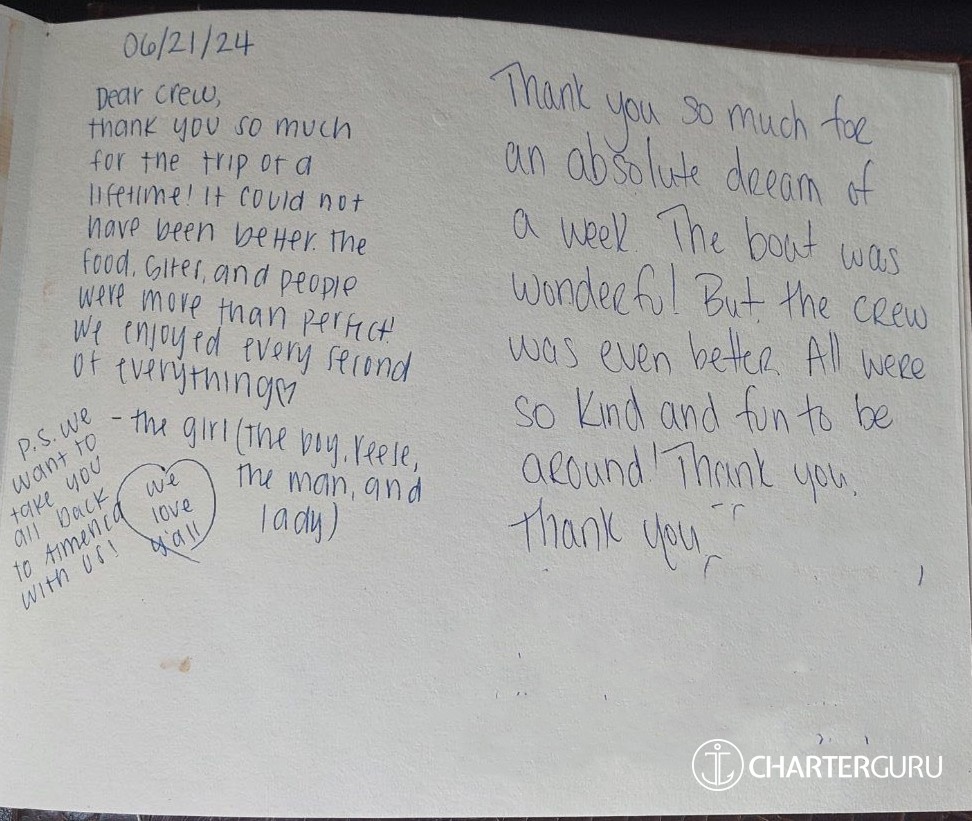 06/21/24
Dear crew,
thank you so much
for the trip of a
lifetime! It could not
have been better. The
food, sites, and people
were more than perfect!
We enjoyed every second
of everything♡
- the girl (the boy, reese,
the man, and
lady)
P.S. We
want to
take you
all back
to America
with us!
we
love
y'all
Thank you so much for
an absolute dream of
a week. The boat was
wonderful! But the crew
was even better. All were
so kind and fun to be
around! Thank you,
thank you
CHARTERGURU